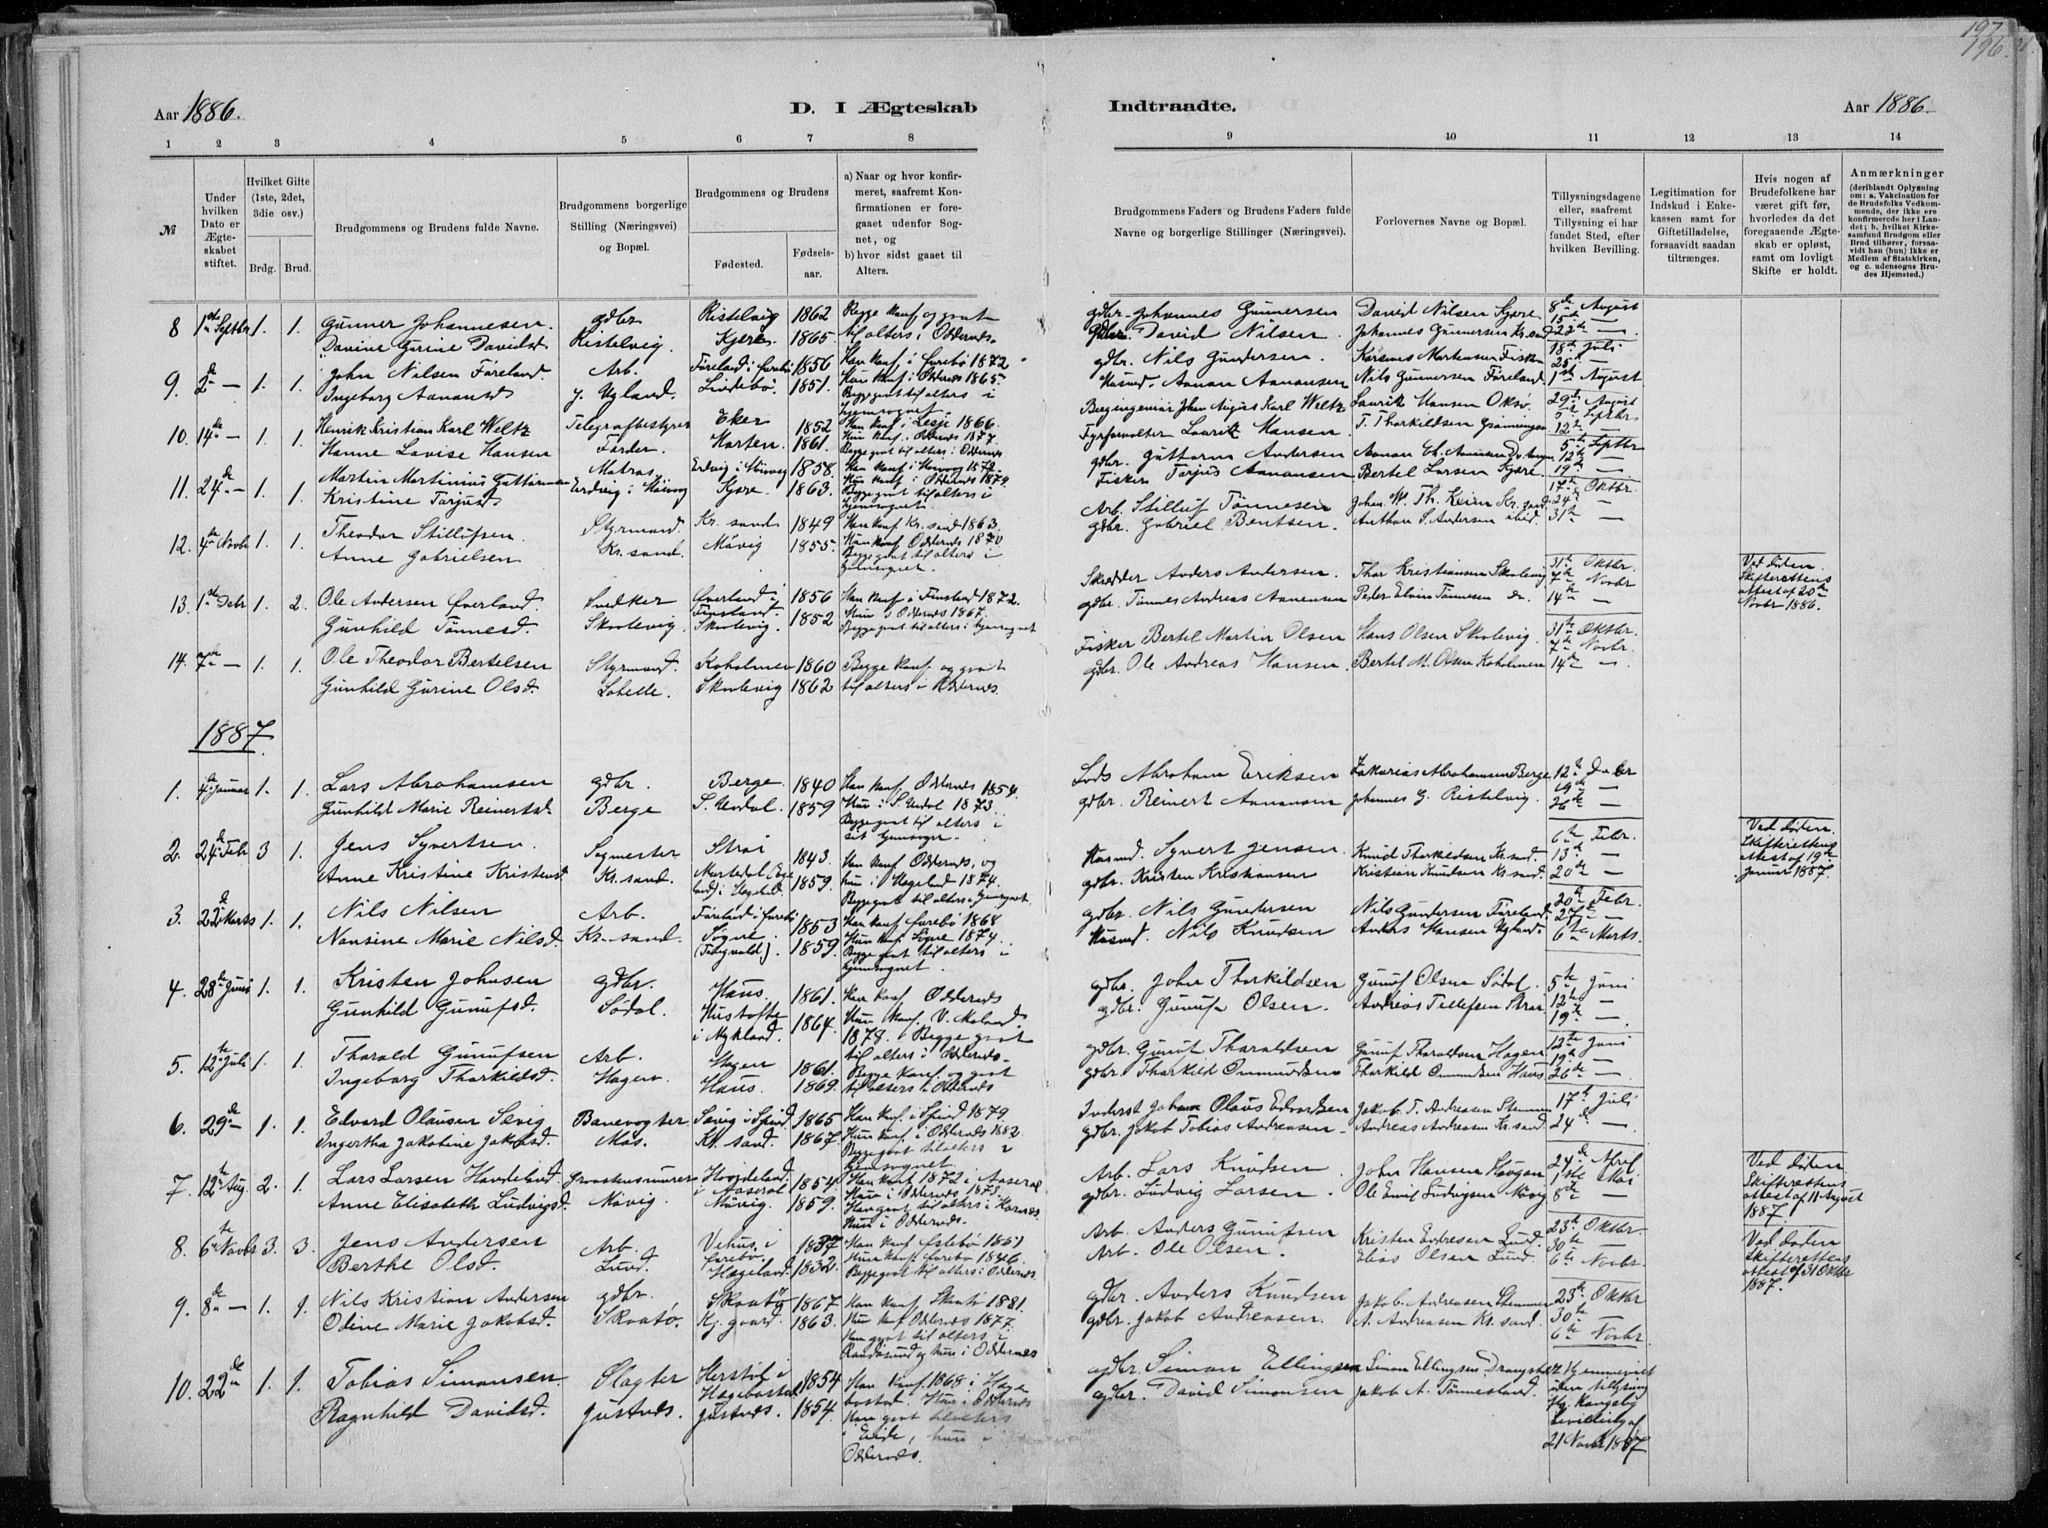 197
196
Aar 1886.
D. I Ægteskab
Indtraadte.
Aar 1886.
1 2 3 4 5 6 7 8 9 10 11 12 13 14
№
Under hvilken Dato er Ægteskabet stiftet.
Hvilket Gifte (1ste, 2det, 3die osv.)
Brdg. Brud.
Brudgommens og Brudens fulde Navne.
Brudgommens borgerlige Stilling (Næringsvei) og Bopæl.
Brudgommens og Brudens
Fødested.
Fødselsaar.
a) Naar og hvor konfirmeret, saafremt Konfirmationen er foregaaet udenfor Sognet, og
b) hvor sidst gaaet til Alters.
Brudgommens Faders og Brudens Faders fulde Navne og borgerlige Stillinger (Næringsvei).
Forlovernes Navne og Bopæl.
Tillysningsdagene eller, saafremt Tillysning ei har fundet Sted, efter hvilken Bevilling.
Legitimation for Indskud i Enkekassen samt for Giftetilladelse, forsaavidt saadan tiltrænges.
Hvis nogen af Brudefolkene har været gift før, hvorledes da det foregaaende Ægteskab er opløst, samt om lovligt Skifte er holdt.
Anmærkninger
(deriblandt Oplysning om: a. Vakcination for de Brudefolks Vedkommende, der ikke ere konfirmerede her i Landet; b. hvilket Kirkesamfund Brudgom eller Brud tilhører, forsaavidt han (hun) ikke er Medlem af Statskirken, og c. udensogns Brudes Hjemsted.)
8 1ste Septbr 1. 1. Gunner Johannesen. gdbr Ristelvig 1862 Begge konf. og gaat gdbr. Johannes Gunnersen David Nilsen Kjære 8de August
Davine Gurine Davidsd Ristelvig. Kjære 1865 til alters i Oddernæs. gdbr. David Nilsen. Johannes Gunnersen Kr.sand 15de — 22de —
9. 2de — 1. 1. John Nilsen Føreland. Arb. Føreland i Evebø 1856 Han konf. i Evebø 1872 gdbr. Nils Gundersen. Karenus Mortensen Fisker 18de Juli
Ingeborg Aanansd y. Ugland. Lindebø. 1851. Hun konf. i Oddernæs 1865. Begge gaat til alters i hjemsognet. Husmd. Aanan Aanansen Nils Gunnersen Føreland. 25de — 1ste August
10. 14de — 1. 1. Henrik Kristian Karl Weltz Telegrafbestyrer Eker 1852 Han konf. i Lesje 1866. Bergingeniør Johan August Karl Weltz Lauritz Hansen Oksø. 29de August
Hanne Lovise Hansen Færder. Horten. 1861. Hun konf. i Oddernæs 1877. Begge gaat til alters i Oddernæs Fyrforvalter Lauritz Hansen. T. Thorkildsen Grønningen 5te Septbr. 12te —
11. 24de — 1. 1. Martin Martinius Guttormsen Matros Erdvig i 1858. gdbr. Guttorm Andersen 5te Septbr
Kristine Tarjusd Erdvig i Kjære. 1863. Hun konf. i Oddernæs 1879 Begge gaat til alters i hjemsognet Fisker Tarjus Aanansen Bertel Larsen Kjære 12te — 19de —
12. 4de Novbr 1. 1. Theodor Stillufsen Styrmand Kr. sand 1849 Han konf. Kr.sand 1863. Arb. Stilluf Tønnesen Johan W. Th. Keim Kr.sand. 17de Oktbr. 24de —
Anne Gabrielsen Kr.sand. Møvig 1855. Hun konf. Oddernæs 1870. Begge gaat til alters i hjemsognet. gdbr. Gabriel Bentsen. Anthon S. Andersen ibid. 31te —
13. 1ste Debr 1. 2. Ole Andersen Øverland. Snedker Øverland i Finsland. 1856 Han konf. i Finsland 1872. Skrædder Anders Andersen. Thor Kristiansen Skolevig 31te Oktbr. 7de Novbr Ved døden. Skifterettens attest af 20de Novbr 1886.
Gunhild Tønnesd. Skolevig. Skolevig. 1852 Hun i Oddernæs 1867. Begge gaat til alters i hjemsognet gdbr. Tønnes Andreas Aanensen Peder Elvin Tønnesen do. 14de —
14. 7de — 1. 1. Ole Theodor Bertelsen Styrmand. Koholmen 1860 Begge konf. og gaat Fisker Bertel Martin Olsen Hans Olsen Skolevig. 31te Oktbr. 7de Novbr.
Gunhild Gurine Olsd. Labelle. Skolevig 1862 til alters i Oddernæs. gdbr. Ole Andreas Hansen. Bertel M. Olsen Koholmen 14de —
1887
1. 4de Januar 1. 1. Lars Abrahamsen gdbr. Berge 1840 Han konf. Oddernæs 1854. Lods Abraham Eriksen Zakarias Abrahamsen Berge 12te Debr 19de —
Gunhild Marie Reinertsd. Berge S. Undal. 1859 Hun i S. Undal 1873. Begge gaat til alters i sit hjemsogn. gdbr. Reinert Aanansen Johannes G. Ristelvig. 26de —
2. 24de Febr 3 1. Jens Syvertsen. Sagmester Strai 1843. Han konf. Oddernæs, og Husmd. Syvert Jensen. Knud Thorkildsen Kr.sand. 6te Febr. 13de — Ved døden. Skifterettens attest af 19de Januar 1887.
Anne Kristine Kristensd Kr.sand. 1859. hun i Hægeland 1874. Begge gaat til alters i hjemsognet. gdbr. Kristen Kristiansen Kristian Knudsen Kr.sand. 20de —
3. 22de Marts 1. 1. Nils Nilsen Arb. Føreland i Evebø 1853 Han konf. Evebø 1868 gdbr. Nils Gundersen Nils Gundersen Føreland. 20de Febr. 27de —
Nansine Marie Nilsd. Kr.sand. Søgne 1859. Hun konf. Søgne 1874. Begge gaat til alters i hjemsognet. Husmd. Nils Knudsen Anders Hansen Ugland. 6te Marts.
4. 28de Juni 1. 1. Kristen Johnsen gdbr. Haus. 1861. Han konf. Oddernæs gdbr. John Thorkildsen Gunuf Olsen Sødal. 5te Juni
Gunhild Gunufsd. Sødal. Hustofte i Mykland. 1864. Hun konf. V. Moland 1878. Begge gaat til alters i Oddernæs. gdbr. Gunuf Olsen. Andreas Tellefsen Strai 12te — 19de —
5. 12te Juli 1. 1. Tharald Gunufsen Arb. Hagen 1861. Begge konf. og gaat gdbr. Gunuf Tharaldsen Gunuf Tharaldsen Hagen 12te Juni 19de —
Ingeborg Thorkildsd. Hagen. Haus. 1869. til alters i Oddernæs gdbr. Thorkild Ommundsen Thorkild Ommundsen Haus. 26de —
6. 29de — 1. 1. Edvard Olausen Sævig Banevogter Sævig i Spind. 1865 Han konf. i Spind 1879. Inderst Johan Olaus Edvardsen Jakob T. Andreasen Stemmen 17de Juli
Ingertha Jakobine Jakobsd. Mos. Kr. sand. 1867. Hun konf. i Oddernæs 1882. Begge gaat til alters i hjemsognet gdbr. Jakob Tobias Andreasen. Andreas Andreasen Kr.sand. 24de —
7. 12te Aug. 2. 1. Lars Larsen Haadeland Graastensmurer i Aaseral 1854. Han konf. 1872 i Aaseral Arb. Lars Knudsen John Hansen Haugan 24de April 1ste Mai Ved døden Skifterettens attest af 11 August 1887.
Anne Elisabeth Ludvigsd. Møvig. Møvig. 1859. Hun i Oddernæs 1873. Han gaat til alters i Hornæs. Hun i Oddernæs. gdbr. Ludvig Larsen. Ole Emil Ludvigsen Møvig 8de —
8. 6te Novbr 3. 3. Jens Andersen Arb. Vehus, i Evebø 1837 Han konf. Evebø 1851 Arb. Anders Gunufsen Kristen Endresen Lund. 23de Oktbr. 30te — Ved døden. Skifterettens attest af 31 Oktbr 1887.
Berthe Olsd. Lund. Hægeland. 1832. Hun konf. Evebø 1846. Begge gaat til alters i Oddernæs. Arb. Ole Olsen. Elias Olsen Lund. 6te Novbr.
9. 8de — 1. 1. Nils Kristian Andersen gdbr. Skaatø 1867 Han konf. 1881. gdbr. Anders Knudsen Jakob Andreasen Stemmen 23de Oktbr
Odine Marie Jakobsd. Skaatø. Kj. gaard. 1863. Hun konf. Oddernæs 1877. Han gaat til alters i Randøsund og hun i Oddernæs gdbr. Jakob Andreasen. A. Andreasen Kr.sand. 30te — 6te Novbr
10. 22de 1. 1. Tobias Simonsen. Slagter Herstøl i Hægebostad 1854 Han konf. 1868 i Hægebostad. Hun i Oddernæs gdbr. Simon Ellingsen Simon Ellingsen Hjemmeviet uden tillysning
Ragnhild Davidsd. Justnæs. Justnæs. 1854. Han gaat til alters i Eide, hun i Oddernæs. gdbr. David Simonsen Jakob A. Tønnesland. Kongelig bevilling af 21 Novbr 1887